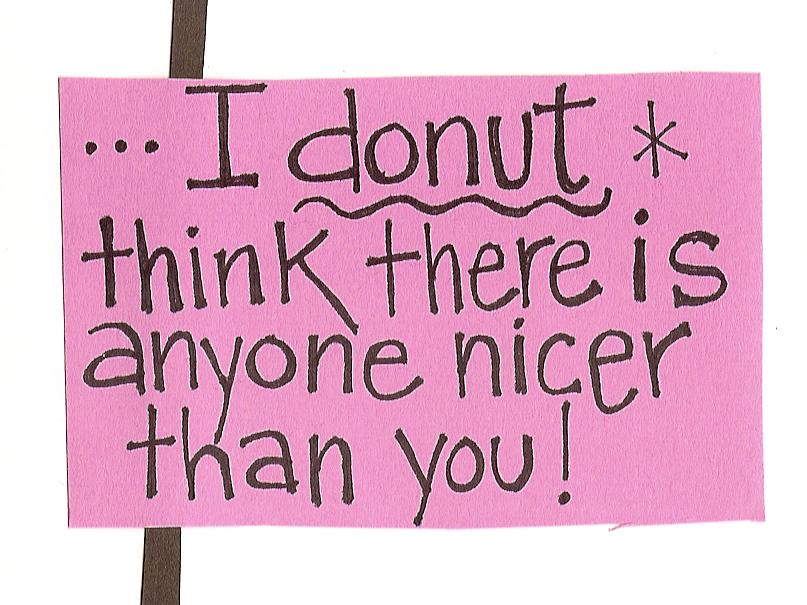 ... I donut *
think there is
anyone nicer
than you!